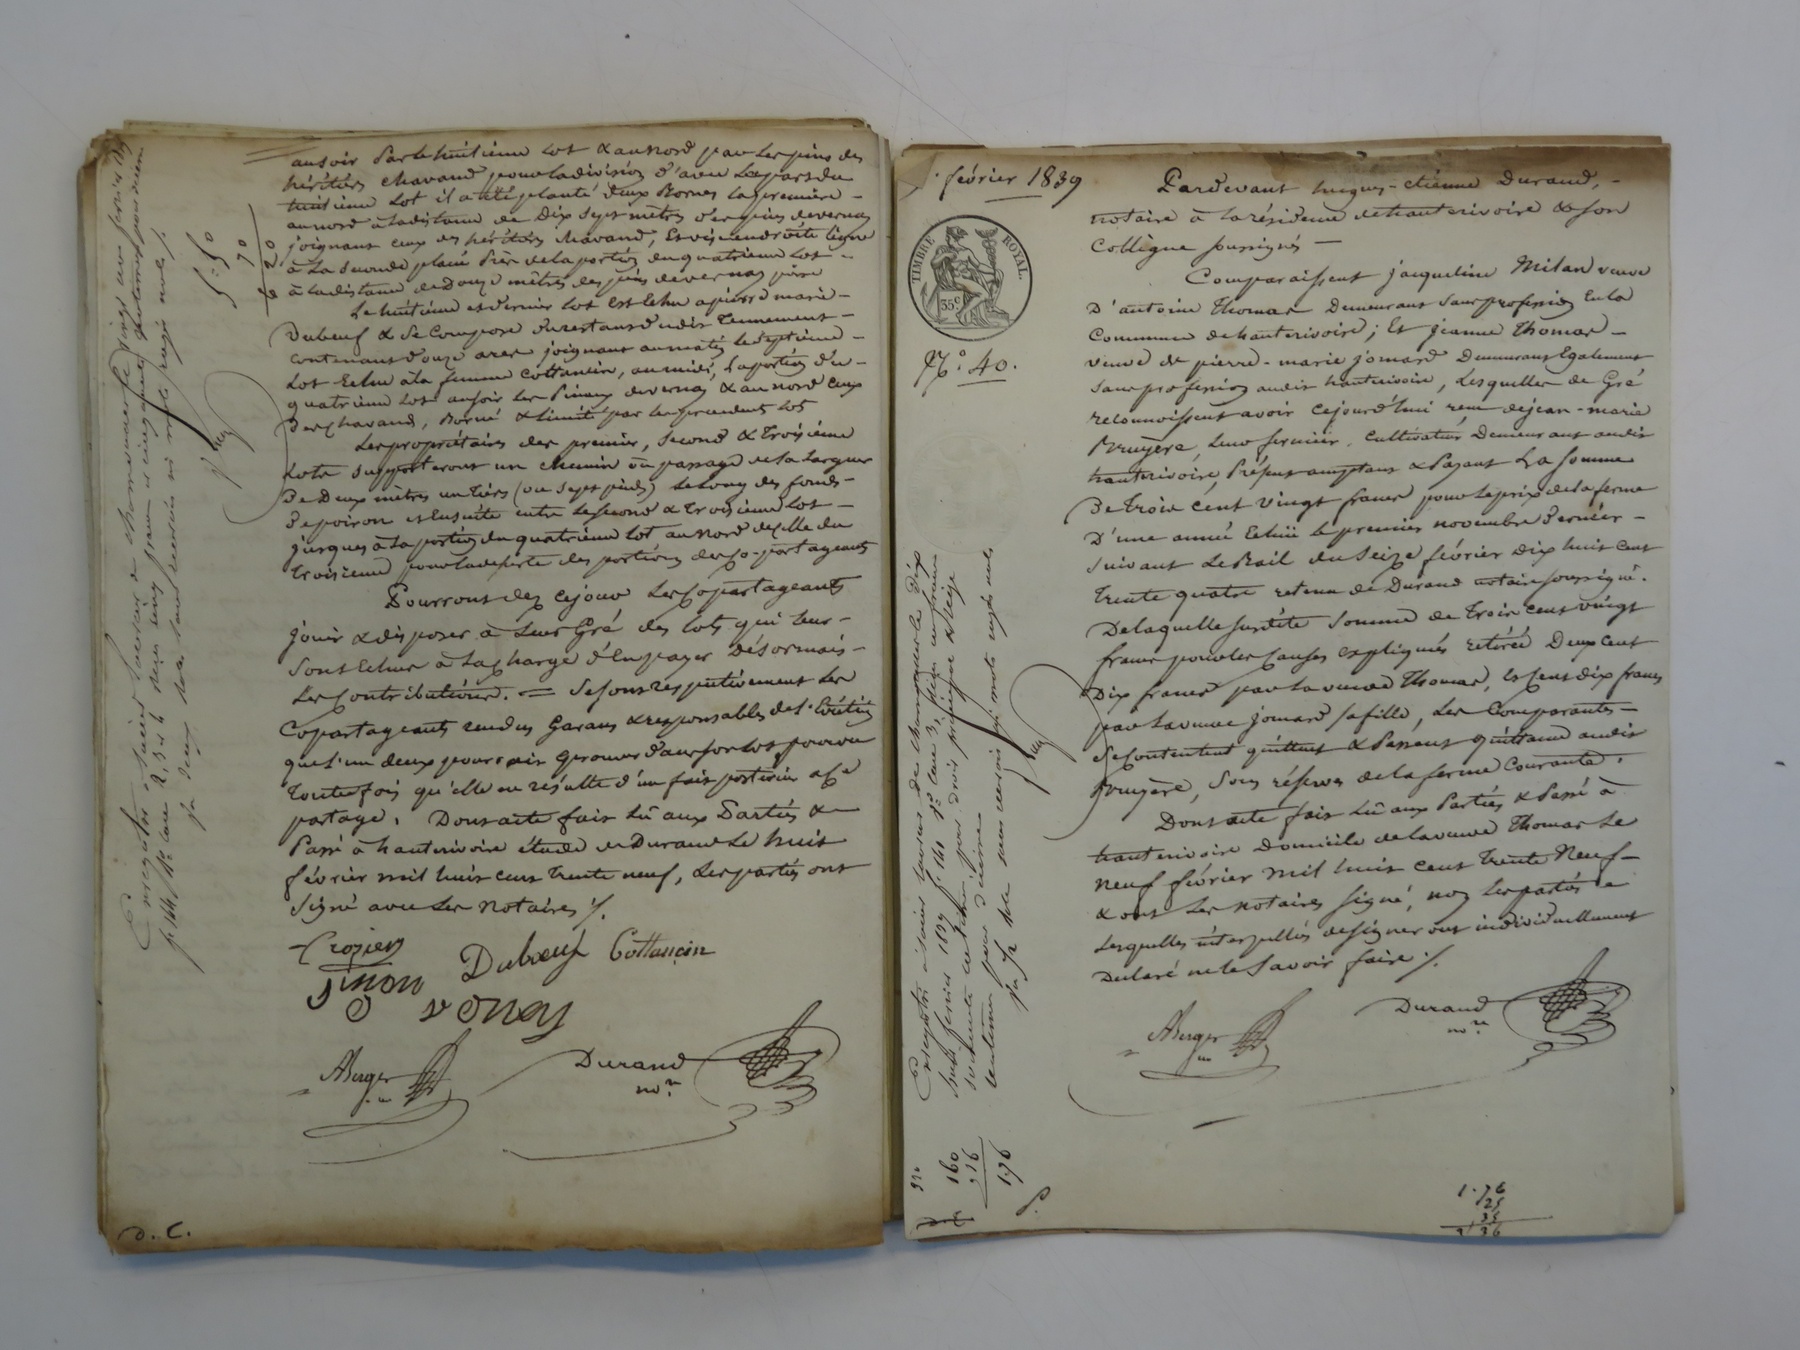 au soir par le huitième lot & au nord par les pins des
héritiers Chavand, pour la division d'avec la part du
huitième lot il a été planté deux Bornes la première -
au nord à la distance de Dix sept mètres des pins devernay
joignant ceux des héritiers Chavand, Et visiendroite ligne
à la seconde placée Près de la portion du quatrième lot -
à la distance de Douze mètres des pins devernay
Le huitième et dernier lot est échu à pierre marie -
Dubeuf & se Compose du restant dudit Tennement -
contenant Douze ares joignant au matin le septième -
Lot Echu à la femme Cottancin, au midi, la portion du -
quatrième lot au soir les Pins devernay & au nord ceux
des Chavand, Borné & limité par les précédents lots
Les propriétaires des premier, second & troisième
Lots supporteront un chemin ou passage de la largeur
De Deux mètres un tiers (ou sept pieds) le long des fonds -
de poiron et Ensuite entre le second & troisième Lot -
jusques à la portion du quatrième lot au nord de celle du
troisième pour la desserte des portions des Co-partageants
Pourront dez cejour Les Copartageants
jouir & disposer à Leur Gré des lots qui leur -
sont Echus à la Charge d'En payer Désormais -
Les Contributions. = Se sont respectivement les
Copartageants rendus Garans & responsables de l'Eviction
que l'un deux pourrait éprouver dans son lot pourvu
toutefois qu'elle ne résulte d'un fait postérieur à ce
partage. Dont acte fait Lû aux Parties &
Passé à hauterivoire étude de Durand Le huit
février mil huit cent trente neuf, Les parties ont
Signé avec Les notaires ./.
Crozier
Simon Duboeuf Cottancin
Venay
ABerger
Durand
no.re
5.50
70
6 20
D. C.
février 1839
TIMBRE ROYAL.
35c
N.o 40.
Pardevant hugues-étienne Durand, -
notaire à la résidence de hauterivoire & son
Collègue soussignés -
Comparaissent jacqueline Milan veuve
D'antoine Thomas Demeurant Sans profession En la
Commune de hauterivoire ; Et jeanne Thomas -
veuve de pierre-marie jomard Demeurant Egalement
sans profession audit hauterivoire, Lesquelles de Gré
reconnoissent avoir cejourd'hui reçu de jean-marie
Bruyère, Leur fermier, Cultivateur Demeurant audit
hauterivoire, Présent acceptant & Payant La somme
De trois cent vingt francs pour le prix de la ferme
D'une année Echue le premier novembre dernier -
suivant Le Bail du Seize février Dix huit cent
trente quatre retenu de Durand notaire soussigné.
De laquelle susdite somme de trois cent vingt
francs pour les Causes expliquées retirée Deux cent
Dix francs par la veuve Thomas, Et Cent dix francs
par la veuve jomard sa fille, Les Comparantes -
Se contentent quittent & Passent quittance audit
Bruyère, Sous réserve de la ferme Courante.
Dont acte fait Lû aux Parties & Passé à
hauterivoire Domicile de la veuve Thomas Le
neuf février mil huit cent trente Neuf -
& ont Les notaires Signé, non Les parties
Lesquelles interpellées de signer ont individuellement
Déclaré ne le Savoir faire ./.
ABerger
Durand
no.re
160
16
1.76
1.76
25
35
2 36